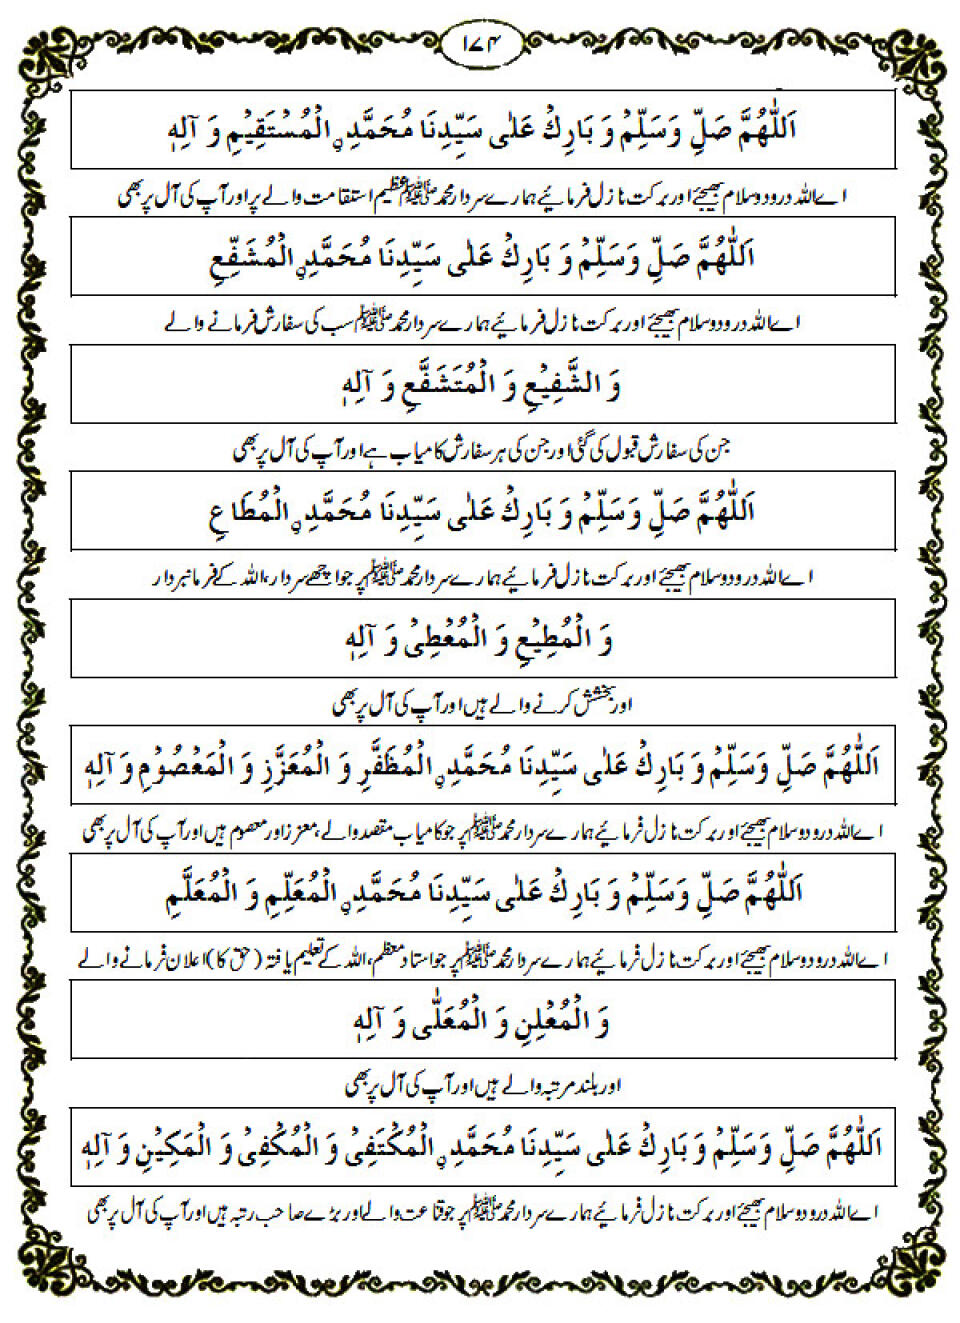 ۱۷۴
اَللّٰهُمَّ صَلِّ وَسَلِّمْ وَ بَارِكْ عَلٰى سَيِّدِنَا مُحَمَّدِ ۣالْمُسْتَقِيْمِ وَ آلِهٖ
اے اللہ درود و سلام بھیجئے اور برکت نازل فرمائیے ہمارے سردار محمد ﷺ عظیم استقامت والے پر اور آپ کی آل پر بھی
اَللّٰهُمَّ صَلِّ وَسَلِّمْ وَ بَارِكْ عَلٰى سَيِّدِنَا مُحَمَّدِ ۣالْمُشَفِّعِ
اے اللہ درود و سلام بھیجئے اور برکت نازل فرمائیے ہمارے سردار محمد ﷺ سب کی سفارش فرمانے والے
وَ الشَّفِيْعِ وَ الْمُتَشَفَّعِ وَ آلِهٖ
جن کی سفارش قبول کی گئی اور جن کی ہر سفارش کامیاب ہے اور آپ کی آل پر بھی
اَللّٰهُمَّ صَلِّ وَسَلِّمْ وَ بَارِكْ عَلٰى سَيِّدِنَا مُحَمَّدِ ۣالْمُطَاعِ
اے اللہ درود و سلام بھیجئے اور برکت نازل فرمائیے ہمارے سردار محمد ﷺ پر جو اچھے سردار، اللہ کے فرمانبردار
وَ الْمُطِيْعِ وَ الْمُعْطِىْ وَ آلِهٖ
اور بخشش کرنے والے ہیں اور آپ کی آل پر بھی
اَللّٰهُمَّ صَلِّ وَسَلِّمْ وَ بَارِكْ عَلٰى سَيِّدِنَا مُحَمَّدِ ۣالْمُظَفَّرِ وَ الْمُعَزَّزِ وَ الْمَعْصُوْمِ وَ آلِهٖ
اے اللہ درود و سلام بھیجئے اور برکت نازل فرمائیے ہمارے سردار محمد ﷺ پر جو کامیاب مقصد والے، معزز اور معصوم ہیں اور آپ کی آل پر بھی
اَللّٰهُمَّ صَلِّ وَسَلِّمْ وَ بَارِكْ عَلٰى سَيِّدِنَا مُحَمَّدِ ۣالْمُعَلِّمِ وَ الْمُعَلَّمِ
اے اللہ درود و سلام بھیجئے اور برکت نازل فرمائیے ہمارے سردار محمد ﷺ پر جو استاد معظم، اللہ کے تعلیم یافتہ (حق کا) اعلان فرمانے والے
وَ الْمُعْلِنِ وَ الْمُعَلّٰى وَ آلِهٖ
اور بلند مرتبہ والے ہیں اور آپ کی آل پر بھی
اَللّٰهُمَّ صَلِّ وَسَلِّمْ وَ بَارِكْ عَلٰى سَيِّدِنَا مُحَمَّدِ ۣالْمُكْتَفِىْ وَ الْمُكْفِىْ وَ الْمَكِيْنِ وَ آلِهٖ
اے اللہ درود و سلام بھیجئے اور برکت نازل فرمائیے ہمارے سردار محمد ﷺ پر جو قناعت والے اور بڑے صاحب رتبہ ہیں اور آپ کی آل پر بھی